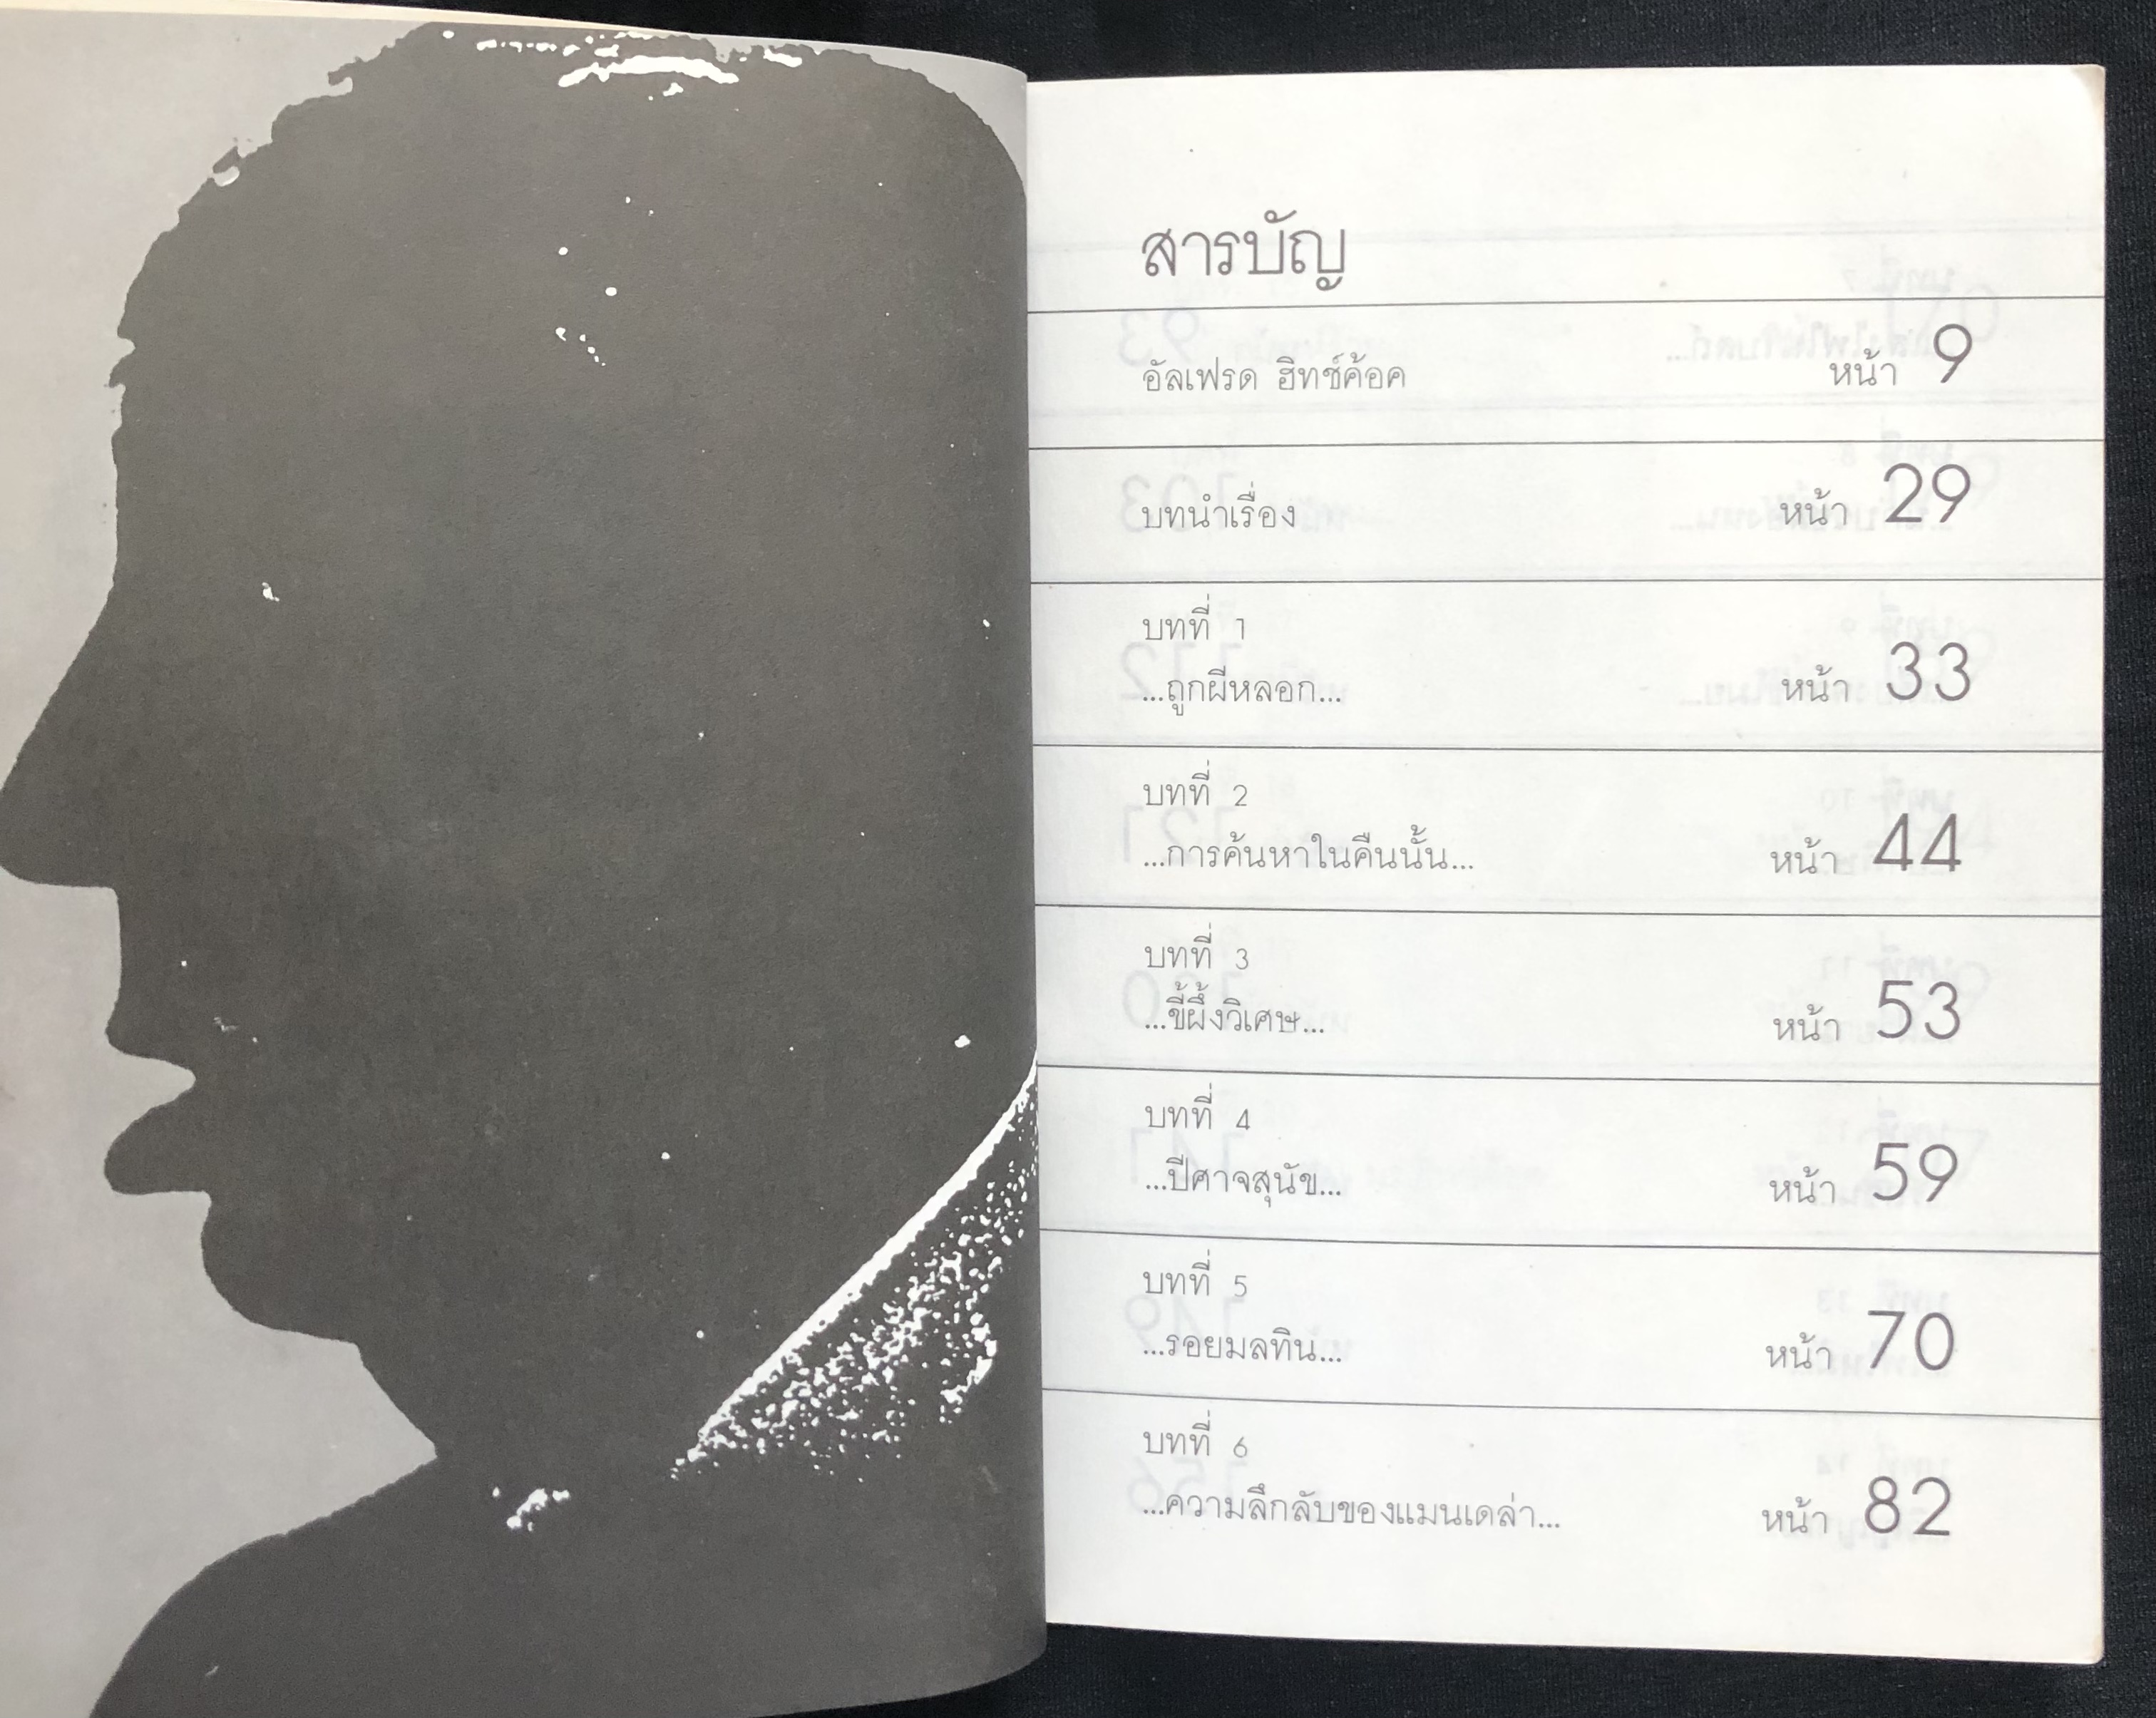 สารบัญ
อัลเฟรด ฮิทช์ค้อค หน้า 9
บทนำเรื่อง หน้า 29
บทที่ 1
...ถูกผีหลอก... หน้า 33
บทที่ 2
...การค้นหาในคืนนั้น... หน้า 44
บทที่ 3
...ขี้ผึ้งวิเศษ... หน้า 53
บทที่ 4
...ปีศาจสุนัข... หน้า 59
บทที่ 5
...รอยมลทิน... หน้า 70
บทที่ 6
...ความลึกลับของแมนเดล่า... หน้า 82